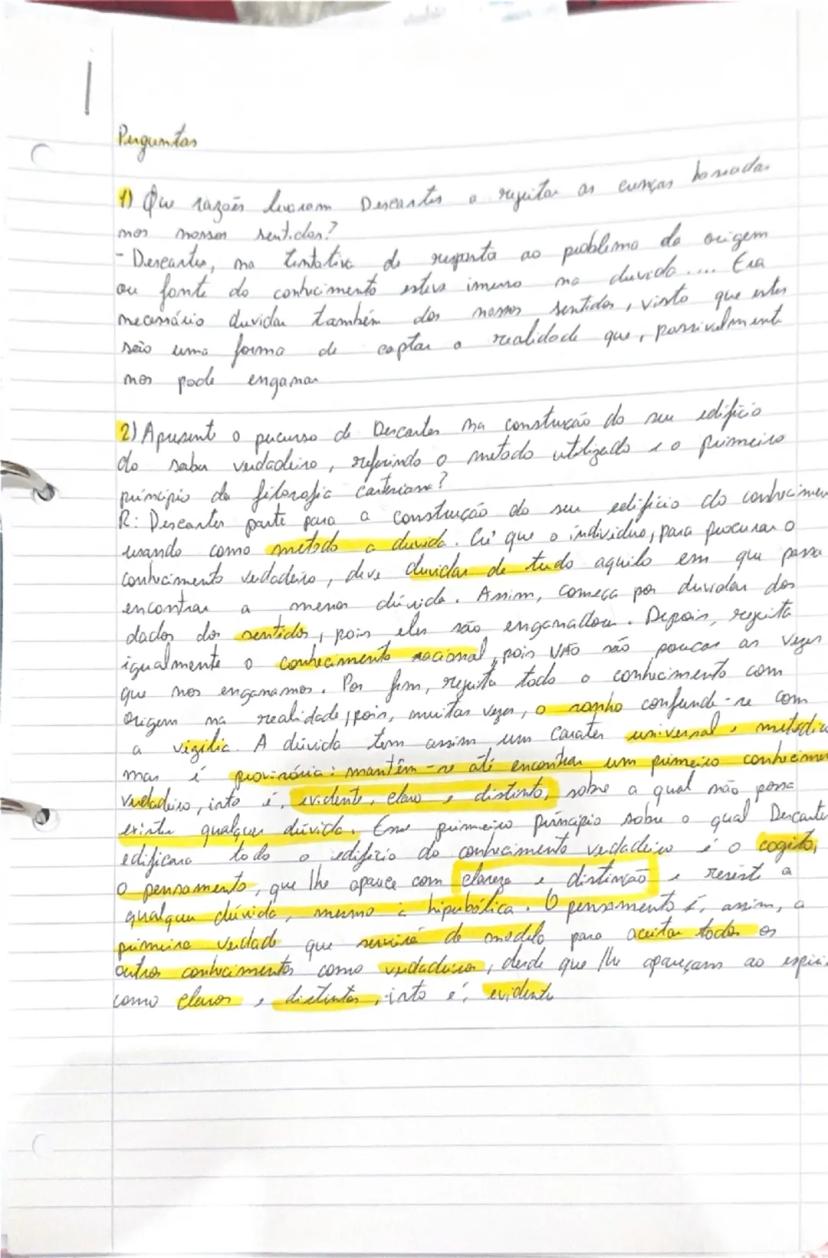 Perguntas
1) Que razões levaram Descartes a rejeitar as crenças baseadas
nos nossos sentidos?
- Descartes, na tentativa de resposta ao problema da origem
ou fonte do conhecimento esteve imerso na duvida.... Era
necessário duvidar também dos nossos sentidos, visto que estes
são uma forma de captar a realidade que, possivelmente
nos pode enganar
2) Apresente o percurso de Descartes na construção do seu edifício
do saber verdadeiro, referindo o metodo utilizado e o primeiro
principio da filosofia cartesiana?
R: Descartes parte para a construção do seu edificio do conhecimen
usando como método a duvida. Crê que o individuo, para procurar o
conhecimento verdadeiro, deve duvidar de tudo aquilo em que possa
encontrar a menor dúvida. Assim, começa por duvidar dos
dados dos sentidos, pois eles são enganadores. Depois, rejeita
igualmente o conhecimento racional, pois VÃO não poucas as vezes
que nos enganamos. Por fim, rejeita todo o conhecimento com
origem na realidade, pois, muitas vezes, o sonho confunde-se com
a vigília. A dúvida tem assim um carater universal e metódic
mas é provisória: mantêm-se até encontrar um primeiro conhecimen
verdadeiro, isto é, evidente, claro e distinto, sobre a qual não possa
existir qualquer dúvida. Esse primeiro princípio sobre o qual Descartes
edificara todo o edifício do conhecimento verdadeiro é o cogito,
o pensamento, que lhe aparece com clareza e distinção e resiste a
qualquer dúvida, mesmo a hiperbólica. O pensamento é, assim, a
primeira verdade que servirá de modelo para aceitar todos os
outros conhecimentos como verdadeiros, desde que lhe apareçam ao espíri
como claros e distintos, isto é, evidente